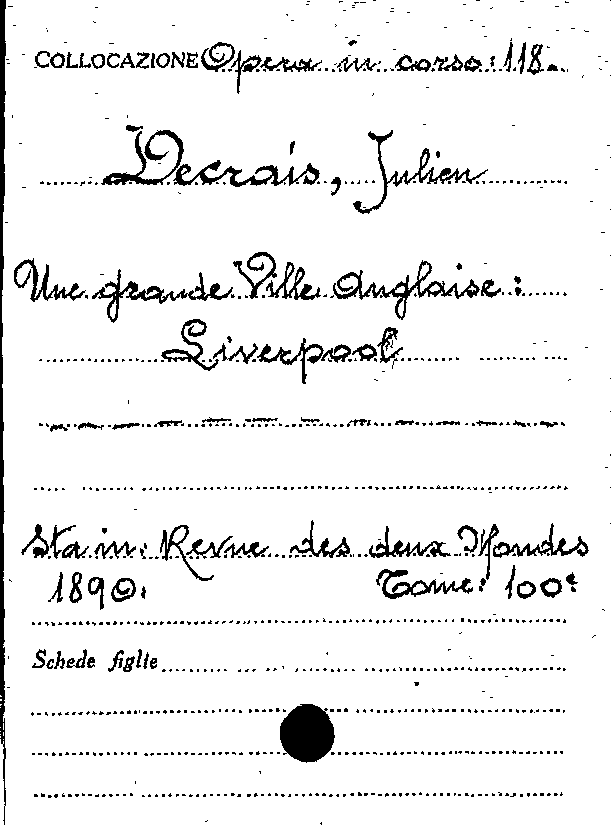 COLLOCAZIONE Opera in corso: 118.
Decrais, Julien
Une grande Ville Anglaise:
Liverpool
Sta in: Revue des deux Mondes
1890. Tome: 100e
Schede figlie